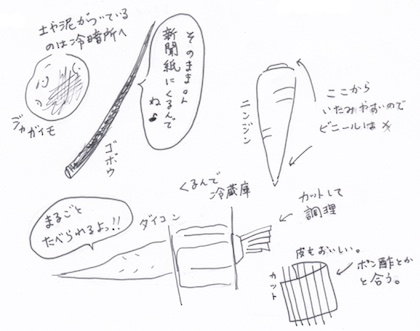 土や泥がついている
のは冷暗所へ
ジャガイモ
そのまま。ん
新聞紙にくるんで
ね♪
ゴボウ
ニンジン
ここから
いたみやすいので
ビニールは×
くるんで
冷蔵庫
カットして
調理
ダイコン
まるごと
たべられるよっ!!
皮もおいしい。
カット
ポン酢とか
と合う。